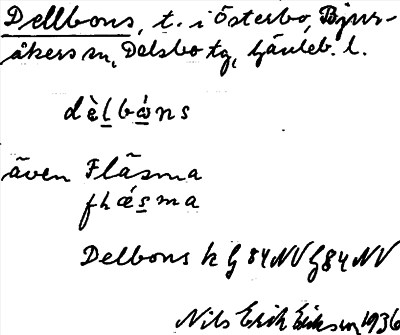 Dellbons, t. i Österbo, Bjurs-
åkers sn, Delsbo tg, Gävleb. l.
dèlbóns
även Flåsma
flǽsma
Delbons k G 84 NV G 84 NV
Nils Erik Erikson 1936